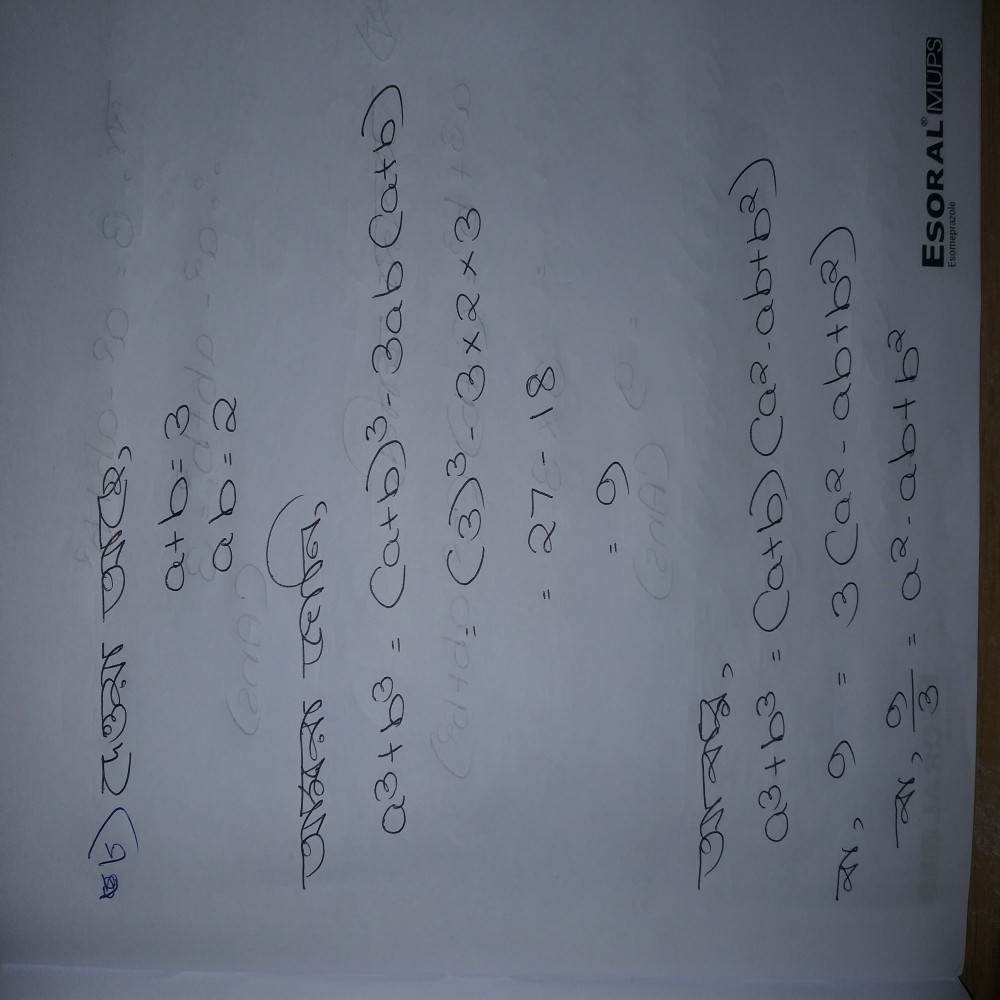 ১) দেওয়া আছে,
a+b=3
ab=2
আমরা জানি,
a3+b3 = (a+b)3-3ab(a+b)
= (3)3-3×2×3
= 27-18
= 9
আবার,
a3+b3 = (a+b)(a2-ab+b2)
বা, 9 = 3(a2-ab+b2)
বা, 9/3 = a2-ab+b2
ESORAL® MUPS
Esomeprazole